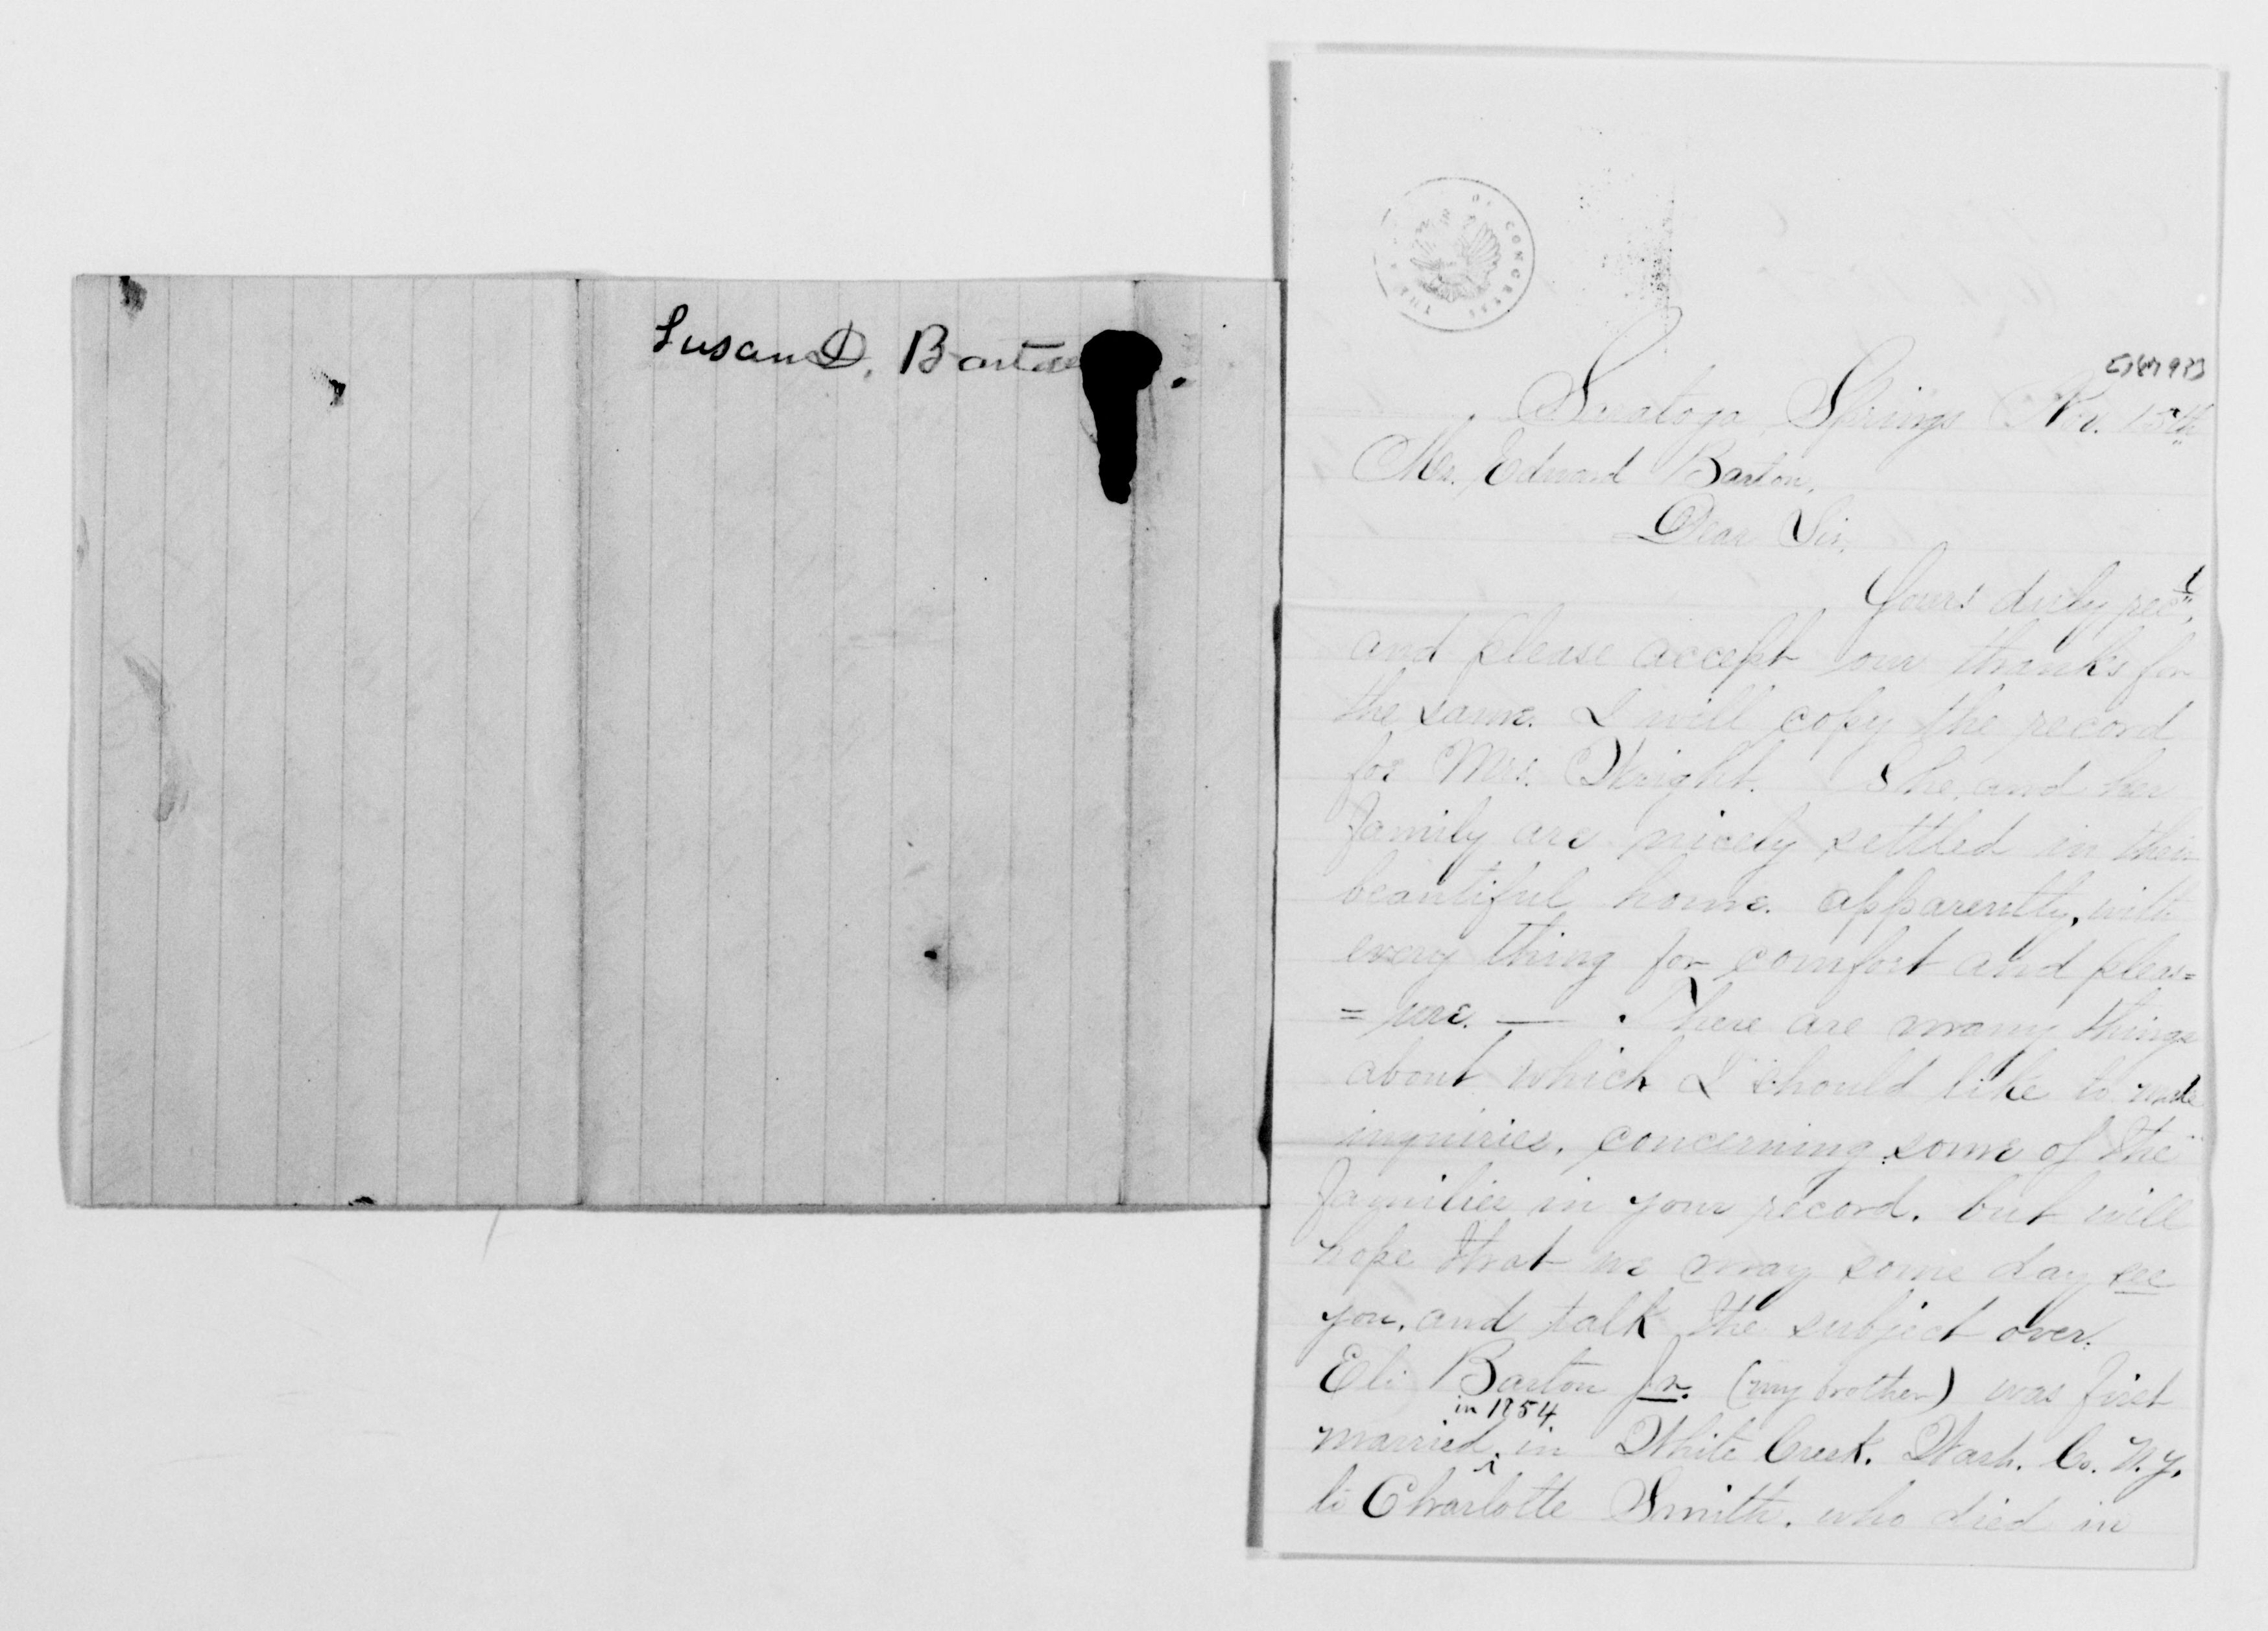 Susan D. Barton.
Saratoga Springs Nov. 15th
Mr. Edward Barton,
Dear Sir,
Yours duly rec'd,
and please accept our thanks for
the same. I will copy the record
for Mrs. Wright. She, and her
family are nicely settled in their
beautiful home. apparently, with
every thing for comfort and pleas=
=ure. — There are many things
about which I should like to make
inquiries, concerning some of the
families in your record, but will
hope that we may some day see
you, and talk the subject over.
Eli Barton Jr. (my brother) was first
in 1854
married, in White Creek. Wash. Co. N.Y.
to Charlotte Smith. who died in